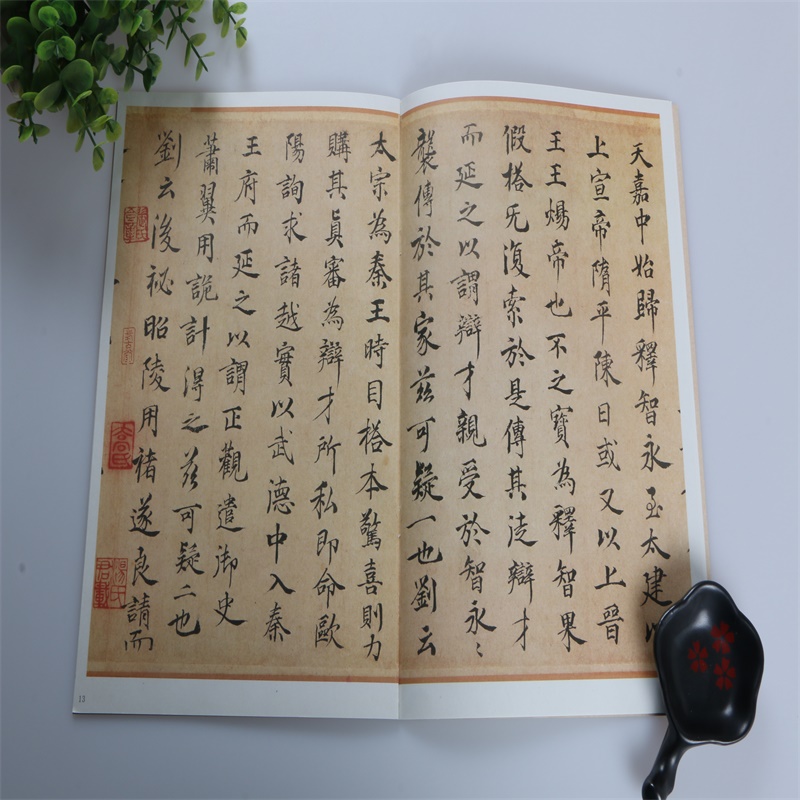 天嘉中始歸釋智永至太建以
上宣帝隋平陳日或又以上晉
王王煬帝也不之寶為釋智果
假榻旡復索於是傳其法辯才
而延之以謂辯才親受於智永〻
襲傳於其家茲可疑一也劉云
太宗為秦王時目榻本驚喜則力
購其眞審為辯才所私即命歐
陽詢求諸越實以武德中入秦
王府而延之以謂正觀遣御史
蕭翼用詭計得之茲可疑二也
劉云後祕昭陵用褚遂良請而
13